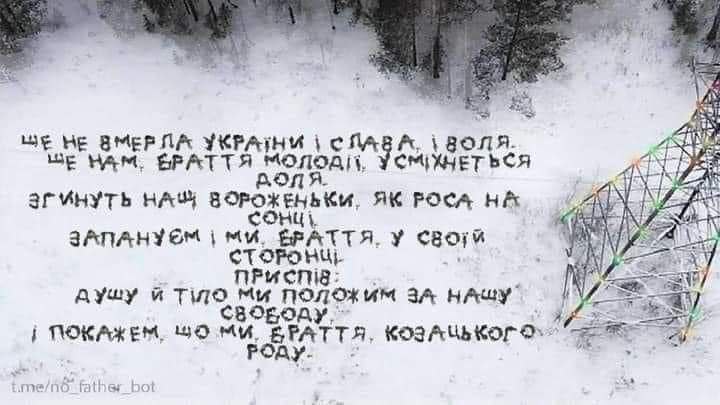 ШЕ НЕ ВМЕРЛА УКРАЇНИ І СЛАВА, І ВОЛЯ.
ШЕ НАМ, БРАТТЯ МОЛОДІЇ, УСМІХНЕТЬСЯ
ДОЛЯ.
ЗГИНУТЬ НАШІ ВОРОЖЕНЬКИ, ЯК РОСА НА
СОНЦІ,
ЗАПАНУЄМ І МИ, БРАТТЯ, У СВОЇЙ
СТОРОНЦІ.
ПРИСПІВ:
ДУШУ Й ТІЛО МИ ПОЛОЖИМ ЗА НАШУ
СВОБОДУ,
І ПОКАЖЕМ, ЩО МИ, БРАТТЯ, КОЗАЦЬКОГО
РОДУ.
t.me/no_father_bot